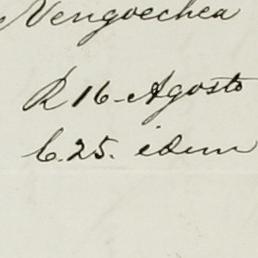 Vengoechea
R 16-Agosto
C. 25. idem